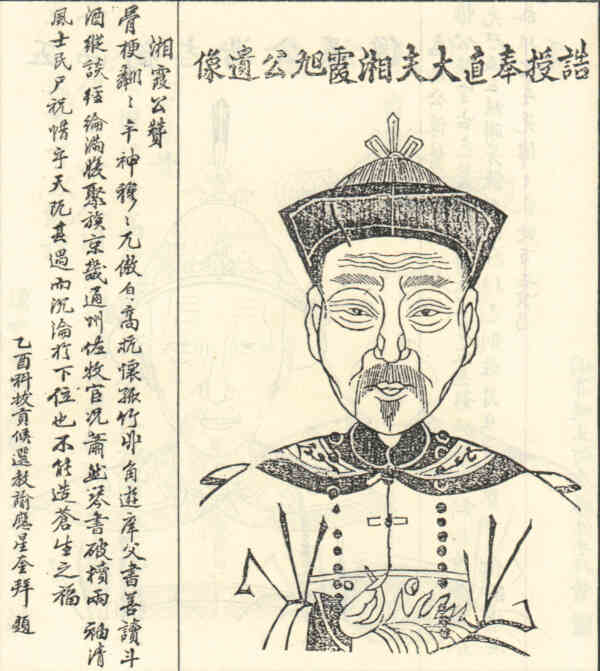 誥授奉直大夫湘霞旭公遺像
湘霞公贊
骨梗〻乎神穆〻兀傲自高抗懷孤竹丱角遊庠父書善讀斗
酒縱談經綸滿腹聚族京畿通州佐牧官况蕭然琴書破櫝兩袖清
風士民尸祝惜乎天阨其遇而沉淪於下位也不能造蒼生之福
乙酉科拔貢候選教諭應星奎拜題